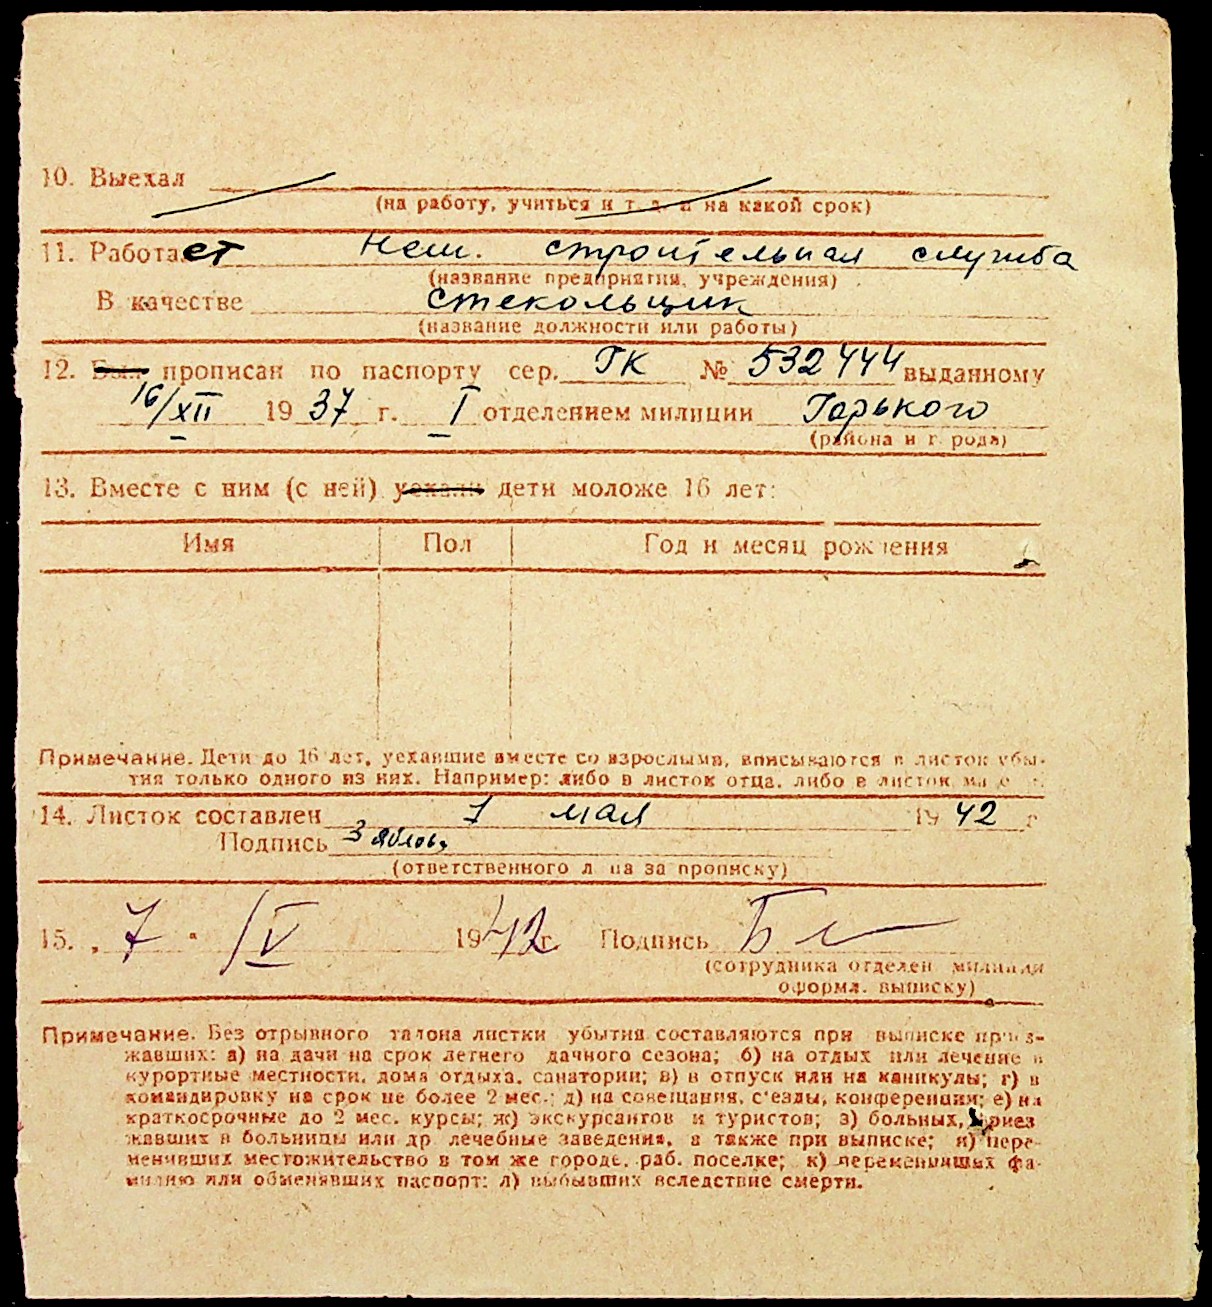 10. Выехал
(на работу, учиться и т. д. и на какой срок)
11. Работает нем. строительная служба
(название предприятия, учреждения)
В качестве стекольщик
(название должности или работы)
12. Был прописан по паспорту сер. ГК № 532444 выданному
16/XII 1937 г. I отделением милиции Горького
(района и города)
13. Вместе с ним (с ней) уехали дети моложе 16 лет:
Имя Пол Год и месяц рождения
Примечание. Дети до 16 лет, уехавшие вместе со взрослыми, вписываются в листок убы-
тия только одного из них. Например: либо в листок отца, либо в листок
14. Листок составлен 1 мая 1942 г
Подпись
(ответственного лица за прописку)
15. „7“ /V 1942 г. Подпись
(сотрудника отделен милиции
оформл. выписку)
Примечание. Без отрывного талона листки убытия составляются при выписке приез-
жавших: а) на дачи на срок летнего дачного сезона; б) на отдых или лечение в
курортные местности, дома отдыха, санатории; в) в отпуск или на каникулы; г) в
командировку на срок не более 2 мес.; д) на совещания, с'езды, конференции; е) на
краткосрочные до 2 мес. курсы; ж) экскурсантов и туристов; з) больных, приез
жавших в больницы или др лечебные заведения, а также при выписке; и) пере-
менивших местожительство в том же городе, раб. поселке; к) переменивших фа-
милию или обменявших паспорт; л) выбывших вследствие смерти.